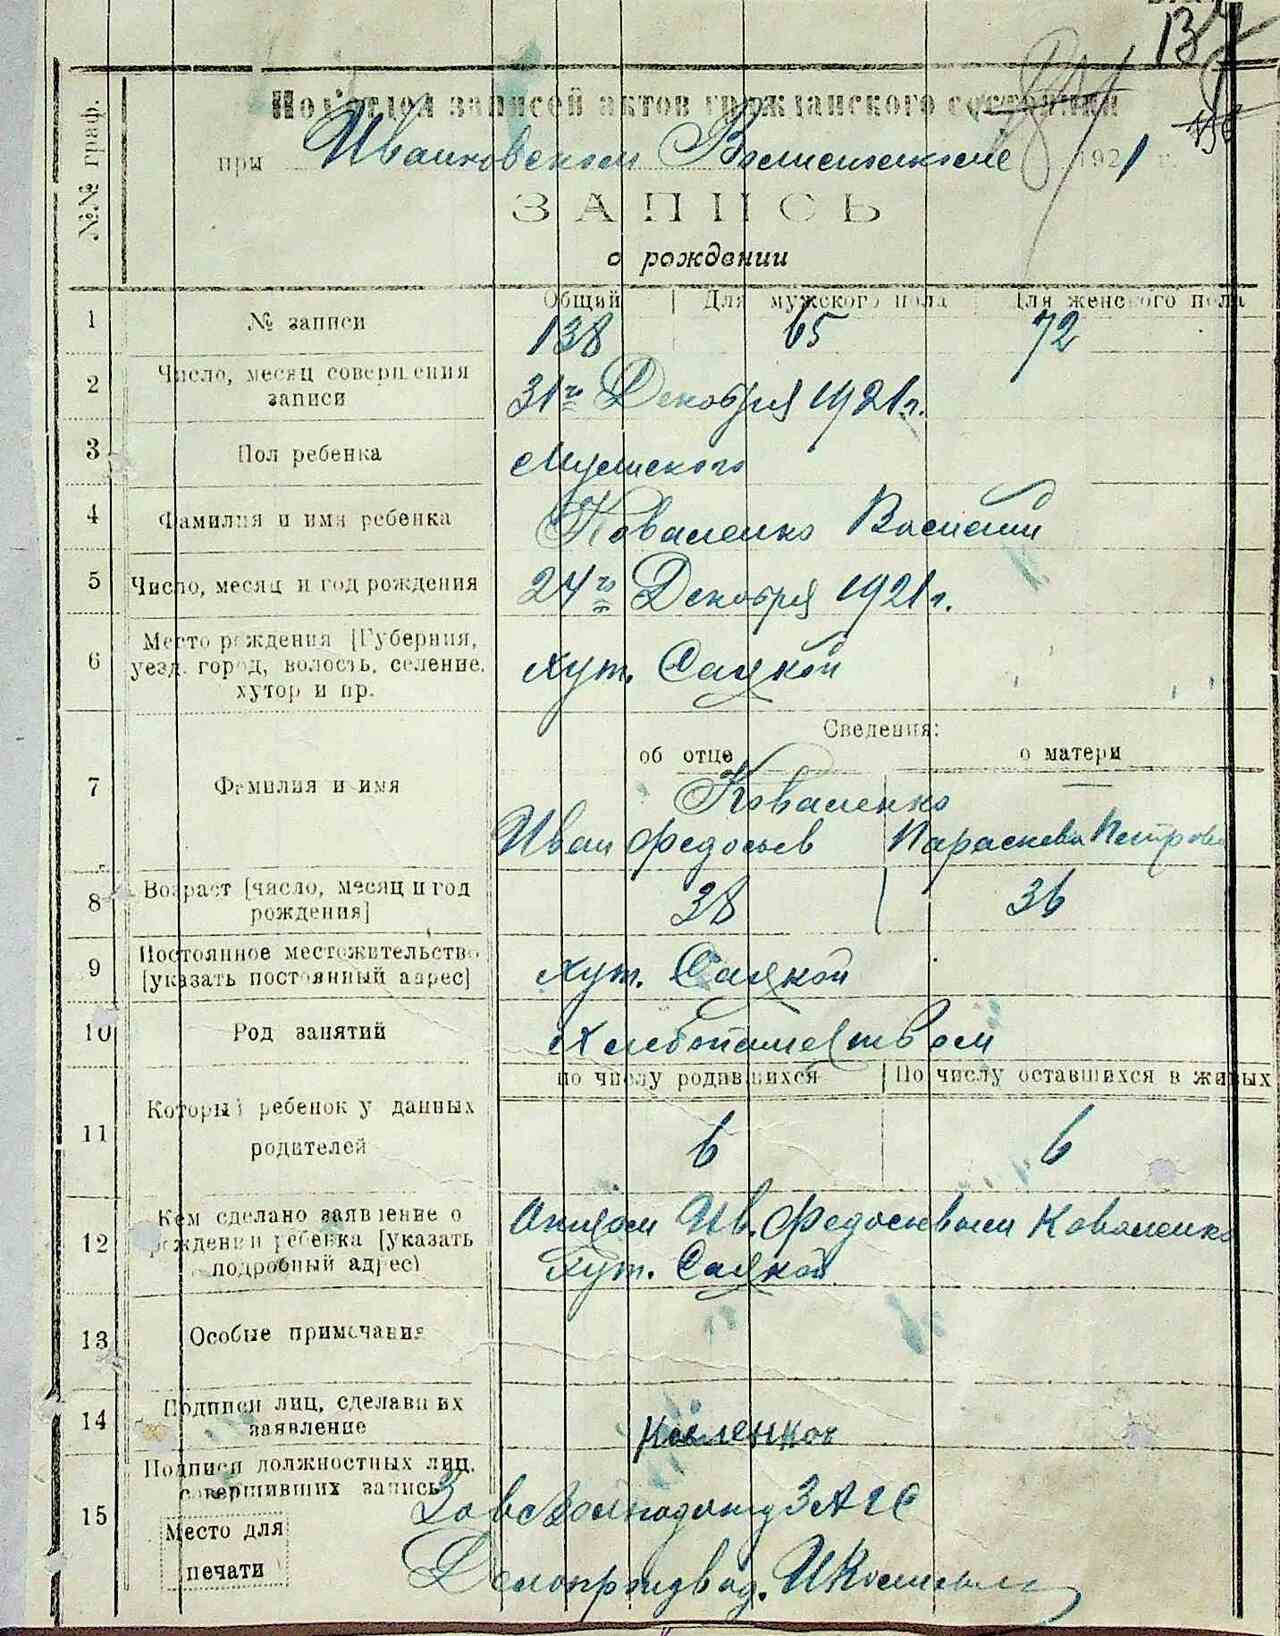 137
Под'отдел записей актов гражданского состояния
при Ивановском Волисполкоме 1921 г.
ЗАПИСЬ
о рождении
№№ граф.
Общий Для мужского пола Для женского пола
1 № записи 138 65 72
2 Число, месяц совершения записи 31го Декабря 1921г.
3 Пол ребенка Мужского
4 Фамилия и имя ребенка Коваленко Василий
5 Число, месяц и год рождения 24го Декабря 1921г.
6 Место рождения [Губерния,
уезд, город, волость, селение,
хутор и пр. хут. Садкой
Сведения:
об отце о матери
7 Фамилия и имя Коваленко
Иван Федосьев Параскева Петрова
8 Возраст [число, месяц и год
рождения] 38 36
9 Постоянное местожительство
[указать постоянный адрес] хут. Садкой
10 Род занятий Хлебопашеством
по числу родившихся По числу оставшихся в живых
11 Который ребенок у данных
родителей 6 6
12 Кем сделано заявление о
рождении ребенка [указать
подробный адрес) Отцом Ив. Федосиевым Коваленко
Хут. Садкой
13 Особые примечания
14 Подписи лиц, сделавших
заявление
15 Подписи должностных лиц,
совершивших запись
Место для
печати
Делопроизвод.